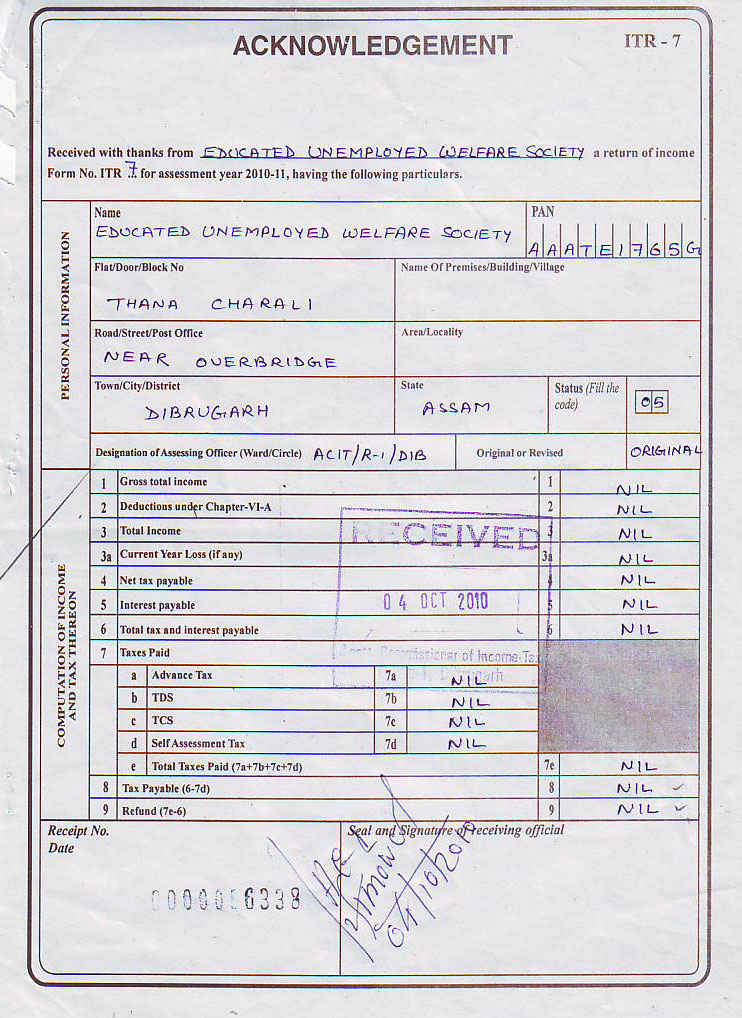 ACKNOWLEDGEMENT
ITR - 7
Received with thanks from EDUCATED UNEMPLOYED WELFARE SOCIETY a return of income
Form No. ITR 7 for assessment year 2010-11, having the following particulars.
PERSONAL INFORMATION
Name
EDUCATED UNEMPLOYED WELFARE SOCIETY
PAN
AAATE1765G
Flat/Door/Block No
THANA CHARALI
Name Of Premises/Building/Village
Road/Street/Post Office
NEAR OVERBRIDGE
Area/Locality
Town/City/District
DIBRUGARH
State
ASSAM
Status (Fill the code)
05
Designation of Assessing Officer (Ward/Circle) ACIT/R-1/DIB
Original or Revised
ORIGINAL
COMPUTATION OF INCOME
AND TAX THEREON
1 Gross total income 1 NIL
2 Deductions under Chapter-VI-A 2 NIL
3 Total Income 3 NIL
3a Current Year Loss (if any) 3a NIL
4 Net tax payable 4 NIL
5 Interest payable 5 NIL
6 Total tax and interest payable 6 NIL
RECEIVED
04 OCT 2010
Commissioner of Income-Tax
7 Taxes Paid
a Advance Tax 7a NIL
b TDS 7b NIL
c TCS 7c NIL
d Self Assessment Tax 7d NIL
e Total Taxes Paid (7a+7b+7c+7d) 7e NIL
8 Tax Payable (6-7d) 8 NIL
9 Refund (7e-6) 9 NIL
Receipt No.
Date
Seal and Signature of receiving official
04/10/2010